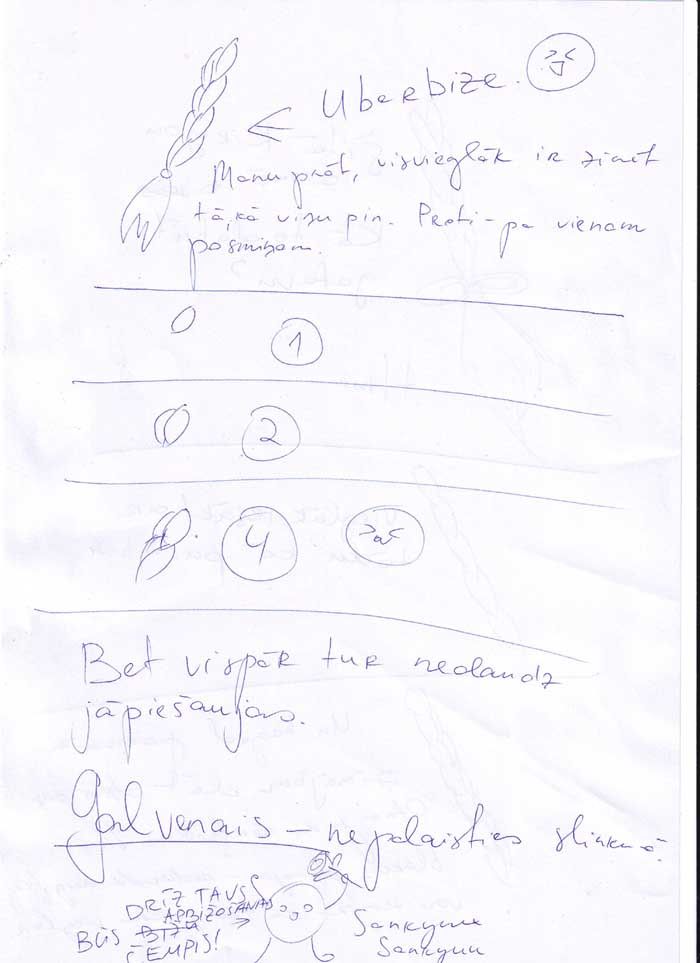 Uberbize.
Manuprāt, visvieglāk ir zīmēt
tā, kā viņu pin. Proti - pa vienam
posmiņam.
1
2
4
Bet vispār tur nedaudz
jāpiešaujas.
Galvenais - nepalaisties slinkumā.
DRĪZ TAVS
APBIŽOŠANAS
BŪS BIŽU
ČEMPIS!
Sankyuu
Sankyuu